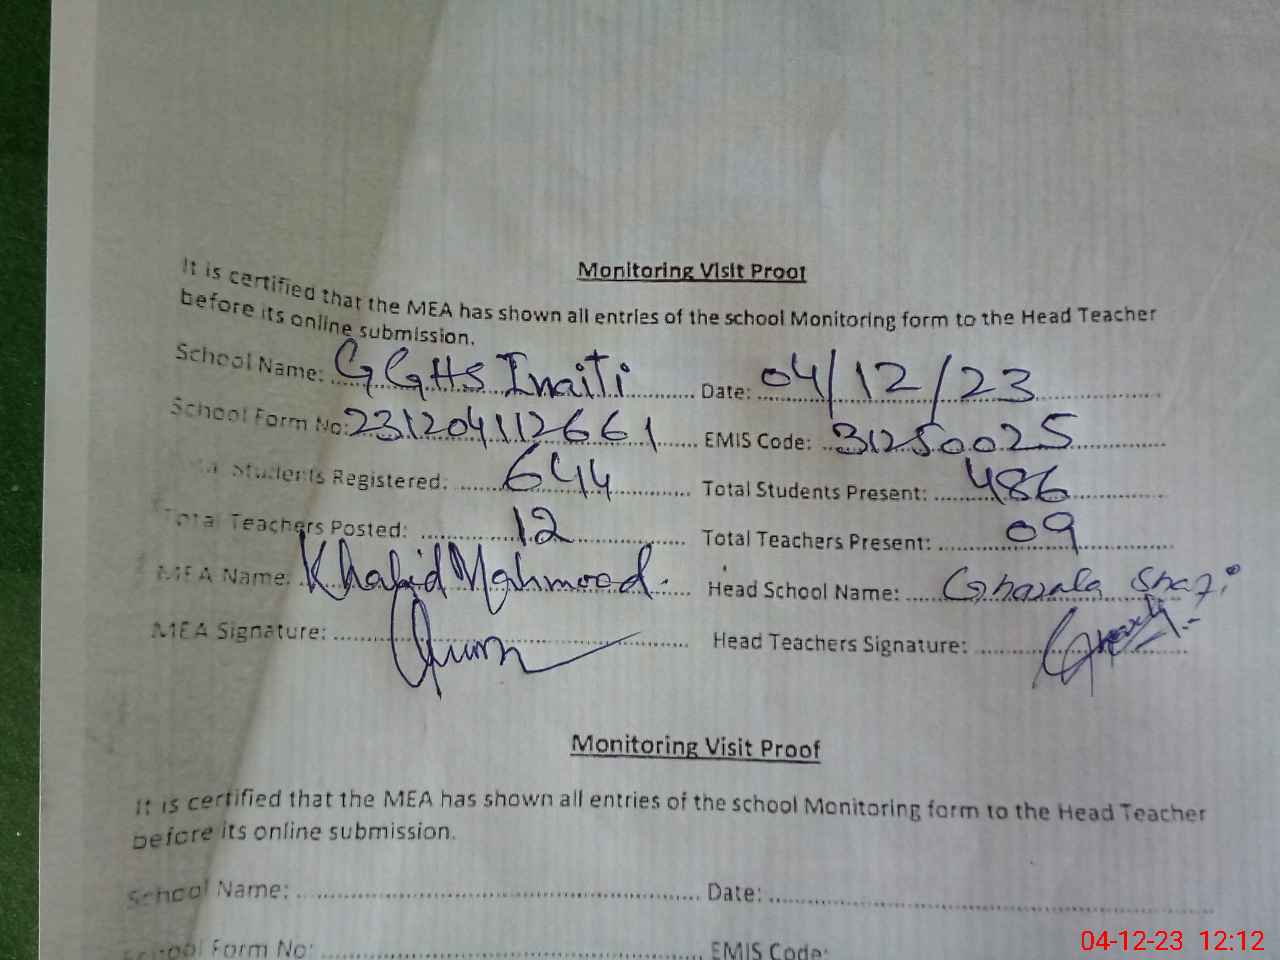 Monitoring Visit Proof
It is certified that the MEA has shown all entries of the school Monitoring form to the Head Teacher
before its online submission.
School Name: GGHS Inaiti Date: 04/12/23
School Form No: 231204112661 EMIS Code: 31250025
Total Students Registered: 644 Total Students Present: 486
Total Teachers Posted: 12 Total Teachers Present: 09
MEA Name: Khalid Mahmood. Head School Name: Ghazala Shazi
MEA Signature: Head Teachers Signature:
Monitoring Visit Proof
It is certified that the MEA has shown all entries of the school Monitoring form to the Head Teacher
before its online submission.
School Name: Date:
School Form No: EMIS Code:
04-12-23 12:12